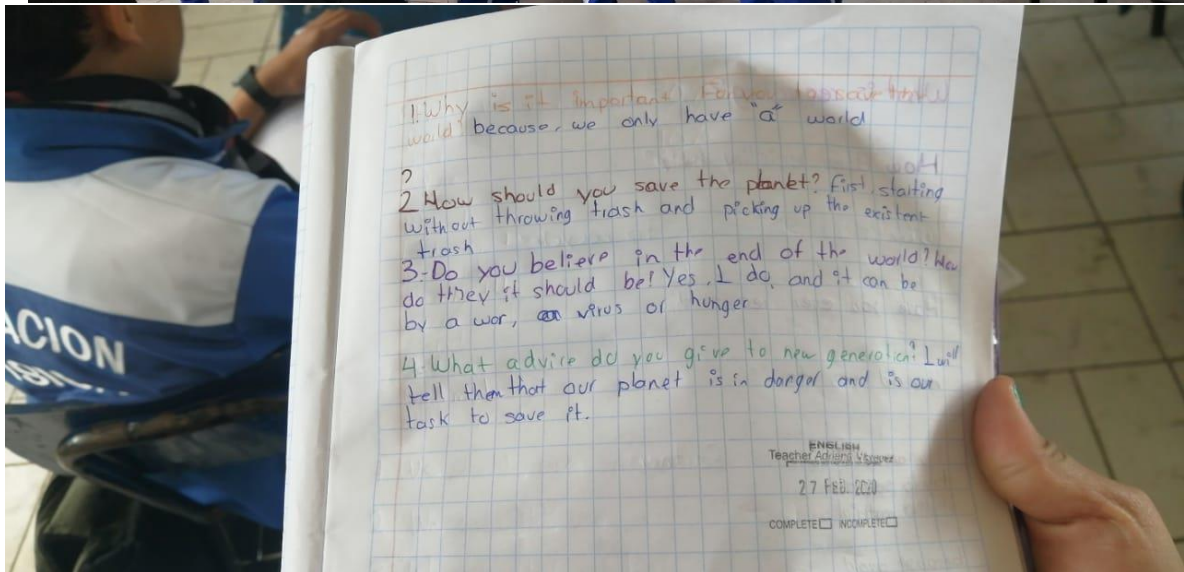 ACION
1. Why is it important for you to save the
world? because, we only have "a" world
?
2 How should you save the planet? First, starting
without throwing trash and picking up the existent
trash
3.-Do you believe in the end of the world? How
do they it should be? Yes, I do, and it can be
by a war, virus or hunger
4. What advice do you give to new generation? I will
tell them that our planet is in danger and is our
task to save it.
ENGLISH
Teacher Adriana
27 FEB. 2020
COMPLETE INCOMPLETE